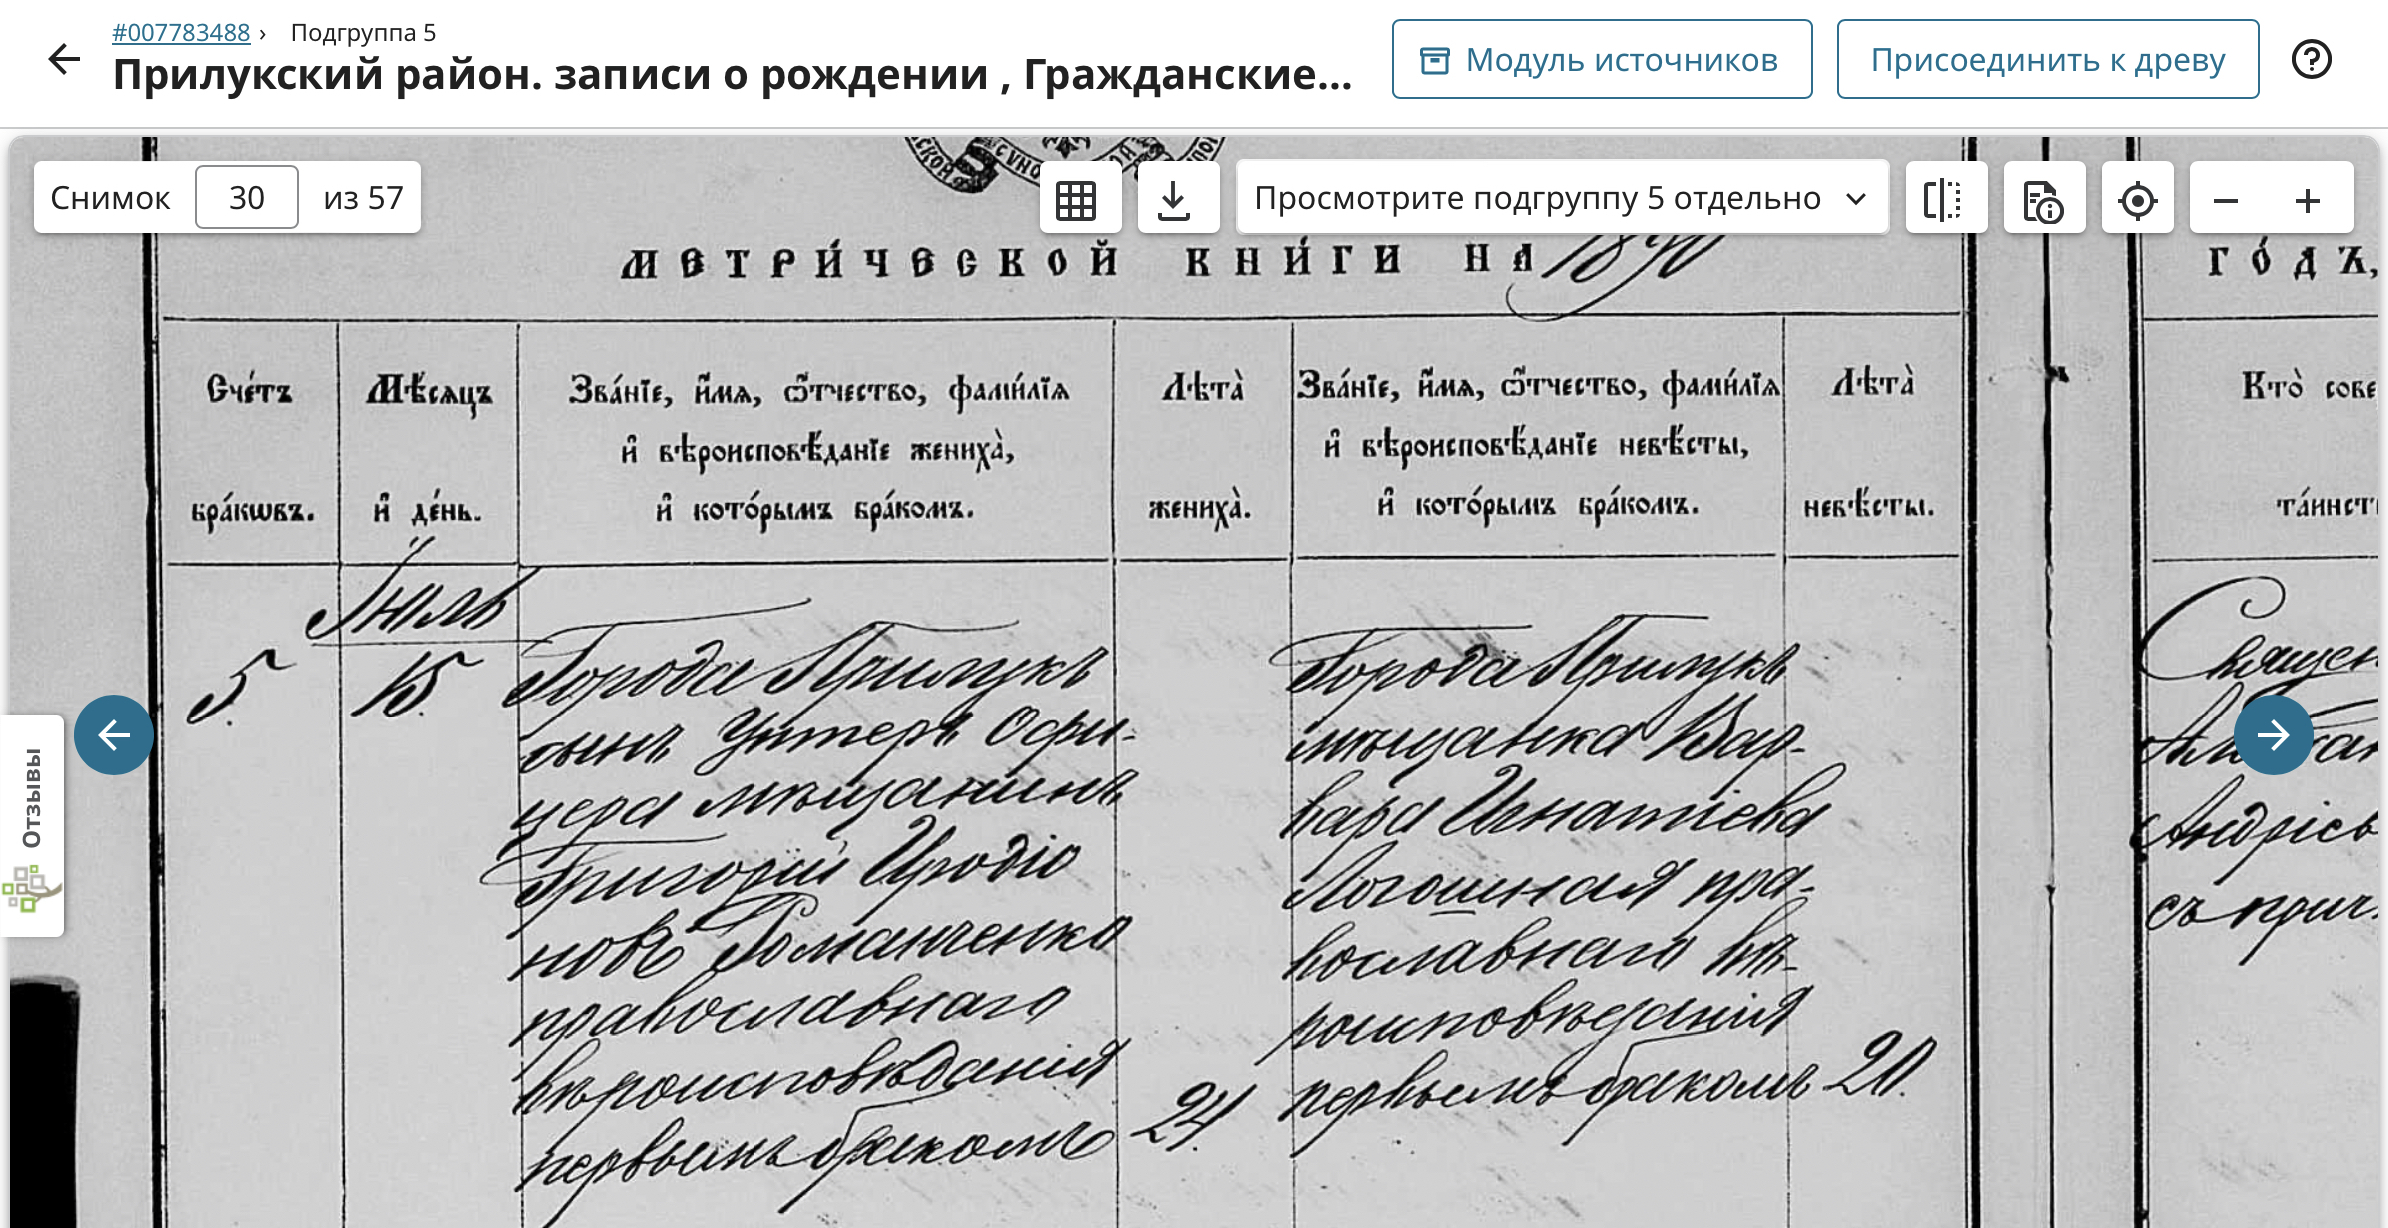 #007783488 › Подгруппа 5
Прилукский район. записи о рождении , Гражданские...
Модуль источников
Присоединить к древу
Снимок 30 из 57
Просмотрите подгруппу 5 отдельно
Отзывы
МЕТРИ́ЧЕСКОЙ КНИ́ГИ НА 1890
ГО́ДЪ,
Сче́тъ
бра́кѡвъ.
Мѣ́сѧцъ
и҆ де́нь.
Зва́нїе, и҆́мѧ, ѻ҆́тчество, фами́лїѧ
и҆ вѣроисповѣ́данїе жениха̀,
и҆ кото́рымъ бра́комъ.
Лѣта̀
жениха̀.
Зва́нїе, и҆́мѧ, ѻ҆́тчество, фами́лїѧ
и҆ вѣроисповѣ́данїе невѣ́сты,
и҆ кото́рымъ бра́комъ.
Лѣта̀
невѣ́сты.
Кто̀ сове
та́инст
Іюль
5.
15.
Города Прилукъ
сынъ Унтеръ Офи-
цера мѣщанинъ
Григорій Иродіо
новъ Романченко
православнаго
вѣроисповѣданія
первымъ бракомъ
24.
Города Прилукъ
мѣщанка Вар-
вара Игнатіева
Логошная пра-
вославнаго вѣ-
роисповѣданія
первымъ бракомъ
20.
Священ
Андріев
съ прич